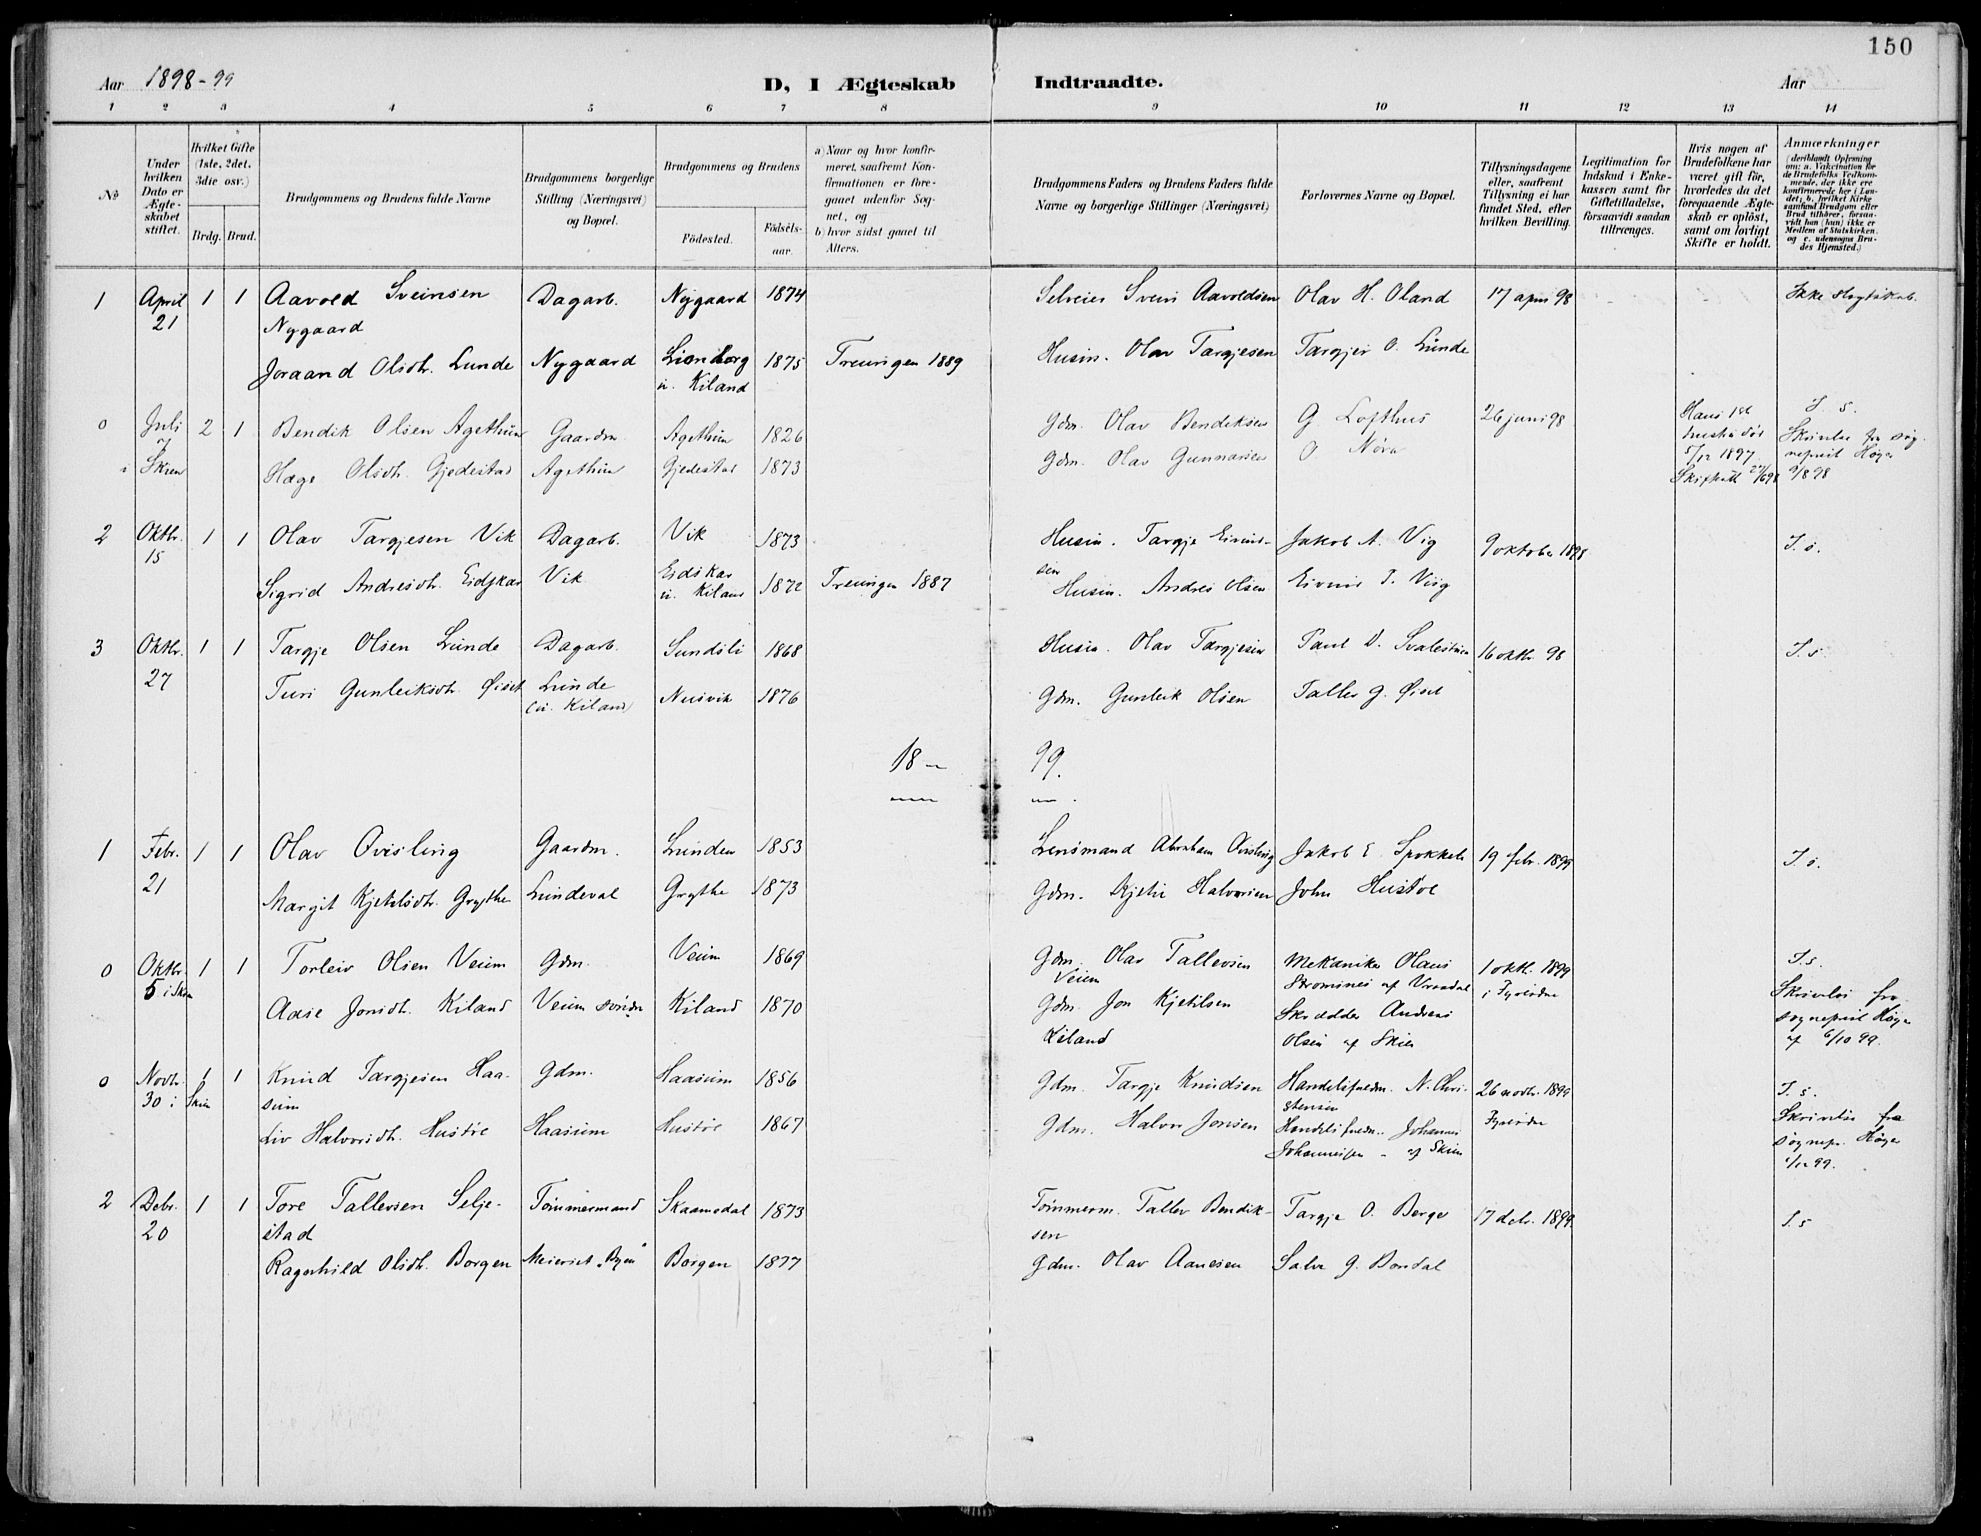 150
Aar 1898-99 D, I Ægteskab Indtraadte. Aar
1 2 3 4 5 6 7 8 9 10 11 12 13 14
No
Under hvilken Dato er Ægteskabet stiftet.
Hvilket Gifte (1ste, 2det, 3die osv.)
Brdg. Brud.
Brudgommens og Brudens fulde Navne
Brudgommens borgerlige Stilling (Næringsvei) og Bopæl.
Brudgommens og Brudens
Födested. Födsels-aar.
a) Naar og hvor konfirmeret, saafremt Konfirmationen er foregaaet udenfor Sognet, og
b) hvor sidst gaaet til Alters.
Brudgommens Faders og Brudens Faders fulde Navne og borgerlige Stillinger (Næringsvei)
Forlovernes Navne og Bopæl.
Tillysningsdagene eller, saafremt Tillysning ei har fundet Sted, efter hvilken Bevilling.
Legitimation for Indskud i Enkekassen samt for Giftetilladelse, forsaavidt saadan tiltrænges.
Hvis nogen af Brudefolkene har været gift för, hvorledes da det foregaaende Ægteskab er oplöst, samt om lovligt Skifte er holdt.
Anmærkninger
(deriblandt Oplysning om: a. Vakcination for de Brudefolks Vedkommende, der ikke ere konfirmerede her i Landet; b. hvilket Kirkesamfund Brudgom eller Brud tilhører, forsaavidt han (hun) ikke er Medlem af Statskirken, og c. udensogns Brudes Hjemsted.)
1 April 1 1 Aavold Sveinsen Dagarb. Nygaard 1874 Selveier Svein Aavoldsen Olav H. Oland 17 april 98 Ikke slegtskab.
21 Nygaard
Joraand Olsdtr. Lunde Nygaard Lionborg 1875 Treungen 1889 Husm. Olav Targjesen Targjei O. Lunde
u. Kiland
0 Juli 2 1 Bendik Olsen Agethun Gaardm Agethun 1826 Gdm. Olav Bendiksen G. Lofthus 26 juni 98 Hans 1st I s.
i Skien Hæge Olsdtr. Gjedestad Agethun Gjedestad 1873 Gdm. Olav Gunnarsen O. Nora 5/12 1897. Skifte 9/8 98
2 Oktbr. 1 1 Olav Targjesen Vik Dagarb. Vik 1873 Husm. Targje Eivindsen Jakob A. Vig 9 oktober 1898 I. s.
15
Sigrid Andresdtr. Eidskar Vik Eidskar 1872 Treungen 1887 Husm. Andres Olsen Eivind T. Vig
u. Kiland
3 Oktbr. 1 1 Targje Olsen Lunde Dagarb. Sundsli 1868 Husm. Olav Targjesen Paul D. 16 oktbr. 98 I. s.
27 Turi Gunleiksdtr. Øiset Lunde (u. Kiland) Nusvik 1876 Gdm. Gunleik Olsen Tallev G. Øiset
18 - 99.
1 Febr. 1 1 Olav Qvisling Gaardm. Lunden 1853 Lensmand Abraham Qvisling Jakob E. 19 febr. 1899 I. s.
21 Margit Kjetilsdtr. Grythe Lundeval Grythe 1873 Gdm. Kjetil Halvorsen John Hustøl
0 Oktbr. 1 1 Torleiv Olsen Veum Gdm. Veum 1869 Gdm. Olav Tallevsen Mekaniker Olaus 1 oktb. 1899 I. s.
5 i Skien Veum Strømnes af Vraadal i Fyresdal Skrivelse fra
Aase Jonsdtr. Kiland Veum Kiland 1870 Gdm. Jon Kjetilsen Skrædder Andreas sognepræst Høyer
Kiland Olsen af Skien af 6/10 99.
0 Novbr. 1 1 Knud Targjesen Haa- Gdm. Haasum 1856 Gdm. Targje Knudsen Handelsfuldm. N. Chri- 26 novbr. 1899 I. s.
30 i Skien sum stensen Skrivelse fra
Liv Halvorsdtr. Hustøl Haasum Hustøl 1867 Gdm. Halvor Jonsen Handelsfuldm. Johannes sognepr. Høyer
Johannessen - af Skien 1/12 99.
2 Debr. 1 1 Tore Tallevsen Selje- Tømmermand Skaamedal 1873 Tømmerm. Tallev Bendik- Targje O. Berge 17 debr. 1899 I. s
20 stad sen
Ragnhild Olsdtr. Borgen Meieriet "Byen" Borgen 1877 Gdm. Olav Aanesen Salve G. Bondal